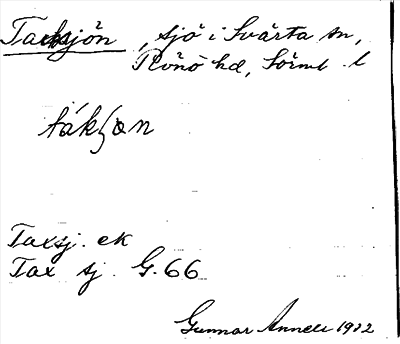 Taxsjön, sjö i Svärta sn,
Rönö hd, Sörml. l
tákʃøn
Taxsj. ek
Tax sj. G. 66
Gunnar Annell 1912